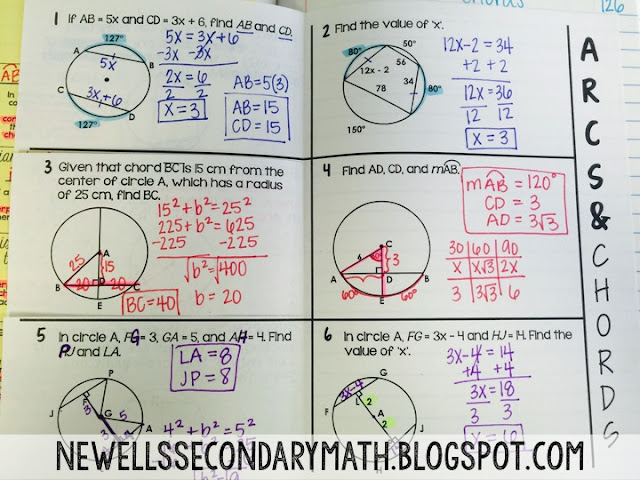 chords 126
1 If AB = 5x and CD = 3x + 6, find AB and CD.
127°
A
5x
B
C
3x+6
D
127°
5x = 3x+6
-3x -3x
2x = 6
2 2
x = 3
AB=5(3)
AB = 15
CD = 15
2 Find the value of 'x'.
80°
50°
12x - 2
56
34
78
80°
150°
12x-2 = 34
+2 +2
12x = 36
12 12
x = 3
3 Given that chord BC is 15 cm from the
center of circle A, which has a radius
of 25 cm, find BC.
A
25
15
B
20
D
20
C
E
15² + b² = 25²
225 + b² = 625
-225 -225
√b² = √400
b = 20
BC = 40
4 Find AD, CD, and mAB.
C
6
3
A
D
B
60°
60°
E
mAB = 120°
CD = 3
AD = 3√3
30 60 90
x x√3 2x
3 3√3 6
5 In circle A, FG = 3, GA = 5, and AH = 4. Find
PJ and LA.
P
F
J
3
G
5
A
LA = 8
JP = 8
4² + b² = 5²
6 In circle A, FG = 3x - 4 and HJ = 14. Find the
value of 'x'.
G
3x-4
F
L
2
A
2
J
3x-4 = 14
+4 +4
3x = 18
3 3
ARCS & CHORDS
NEWELLSSECONDARYMATH.BLOGSPOT.COM